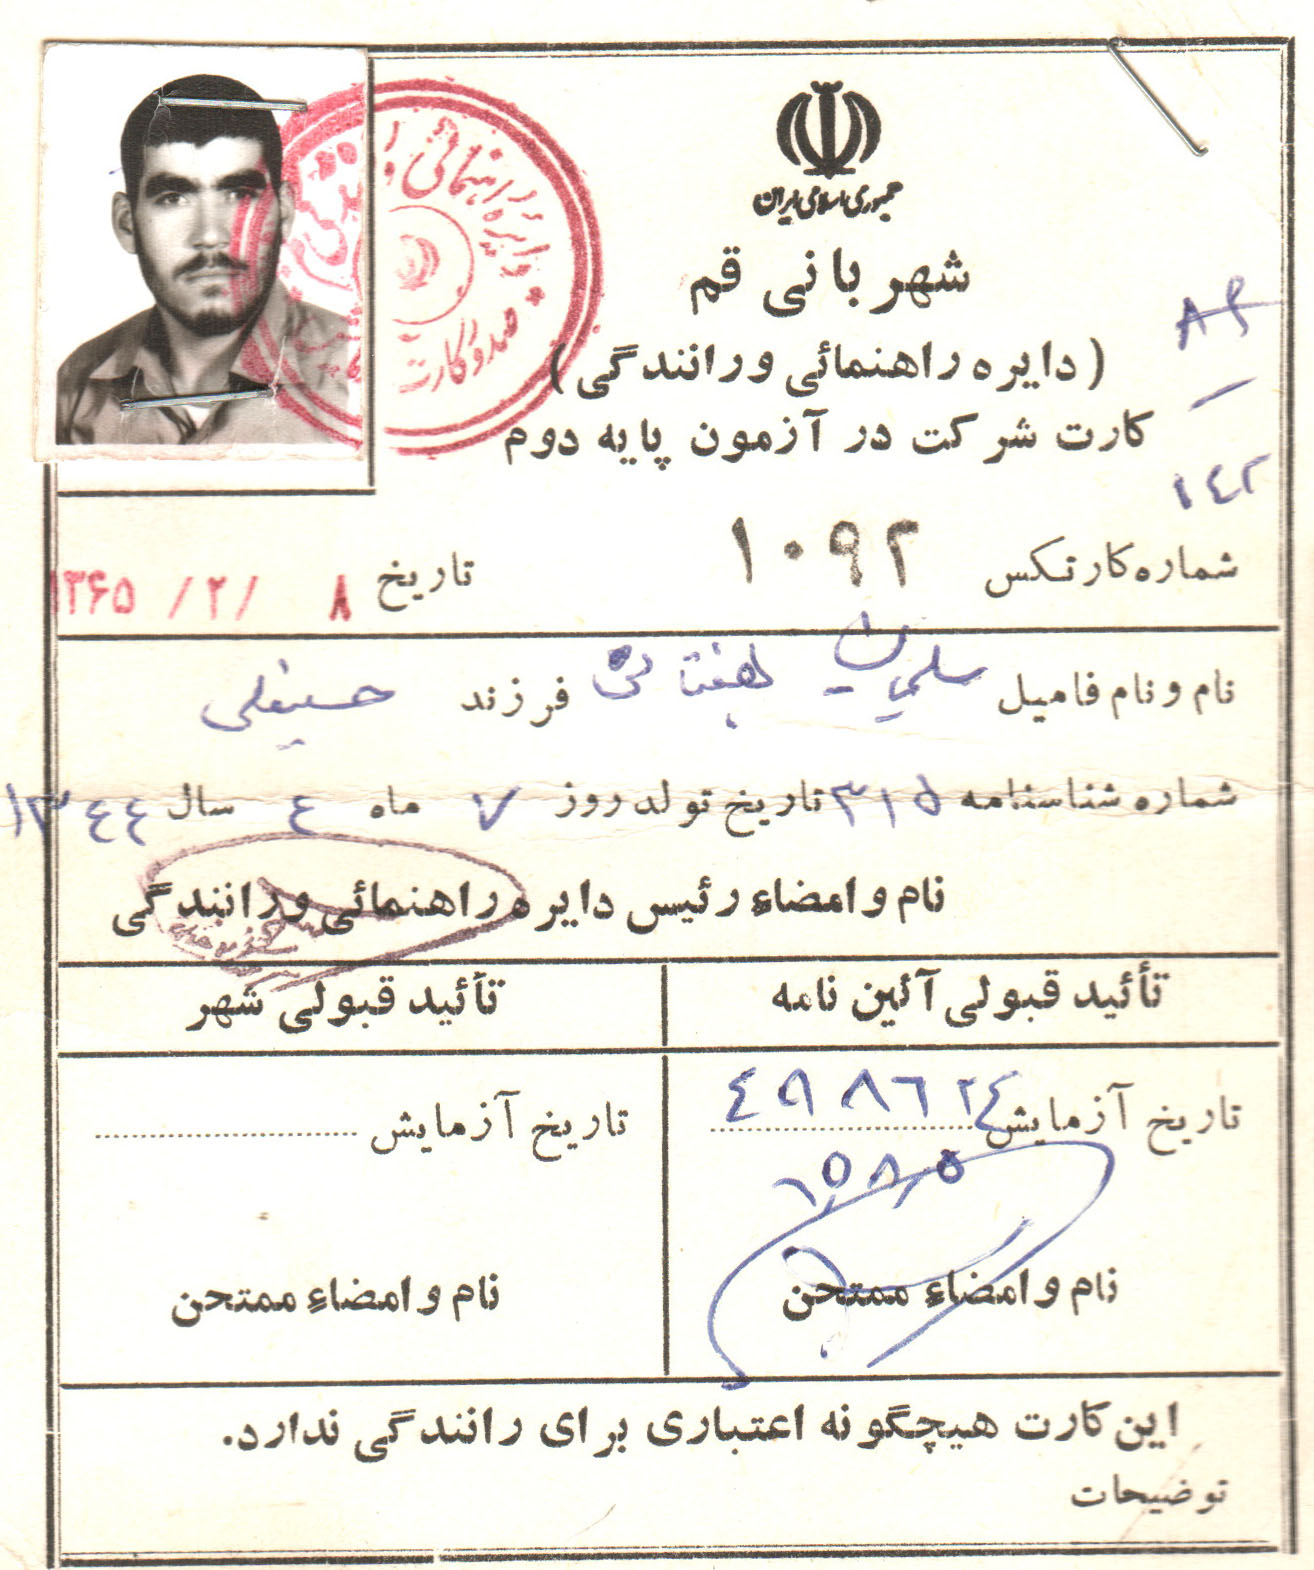 جمهوری اسلامی ایران
شهربانی قم
(دایره راهنمائی و رانندگی)
کارت شرکت در آزمون پایه دوم
دایره راهنمائی و
صدور کارت
۱۴۲
شماره کارتکس ۱۰۹۲ تاریخ ۸ /۲/ ۱۳۶۵
نام و نام فامیل سلیمان فرزند حسینعلی
شماره شناسنامه ۳۱۵ تاریخ تولد روز ۷ ماه ۴ سال ۱۳۴۴
نام و امضاء رئیس دایره راهنمائی و رانندگی
تأئید قبولی آئین نامه تأئید قبولی شهر
تاریخ آزمایش تاریخ آزمایش
نام و امضاء ممتحن نام و امضاء ممتحن
این کارت هیچگونه اعتباری برای رانندگی ندارد.
توضیحات